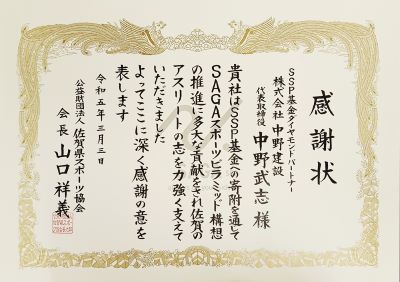 感謝状
SSP基金ダイヤモンドパートナー
株式会社 中野建設
代表取締役 中野武志 様
貴社はSSP基金への寄附を通して
SAGAスポーツピラミッド構想
の推進に多大な貢献をされ佐賀の
アスリートの志を力強く支えて
いただきました
よってここに深く感謝の意を
表します
令和五年三月三日
公益財団法人 佐賀県スポーツ協会
会長 山口祥義